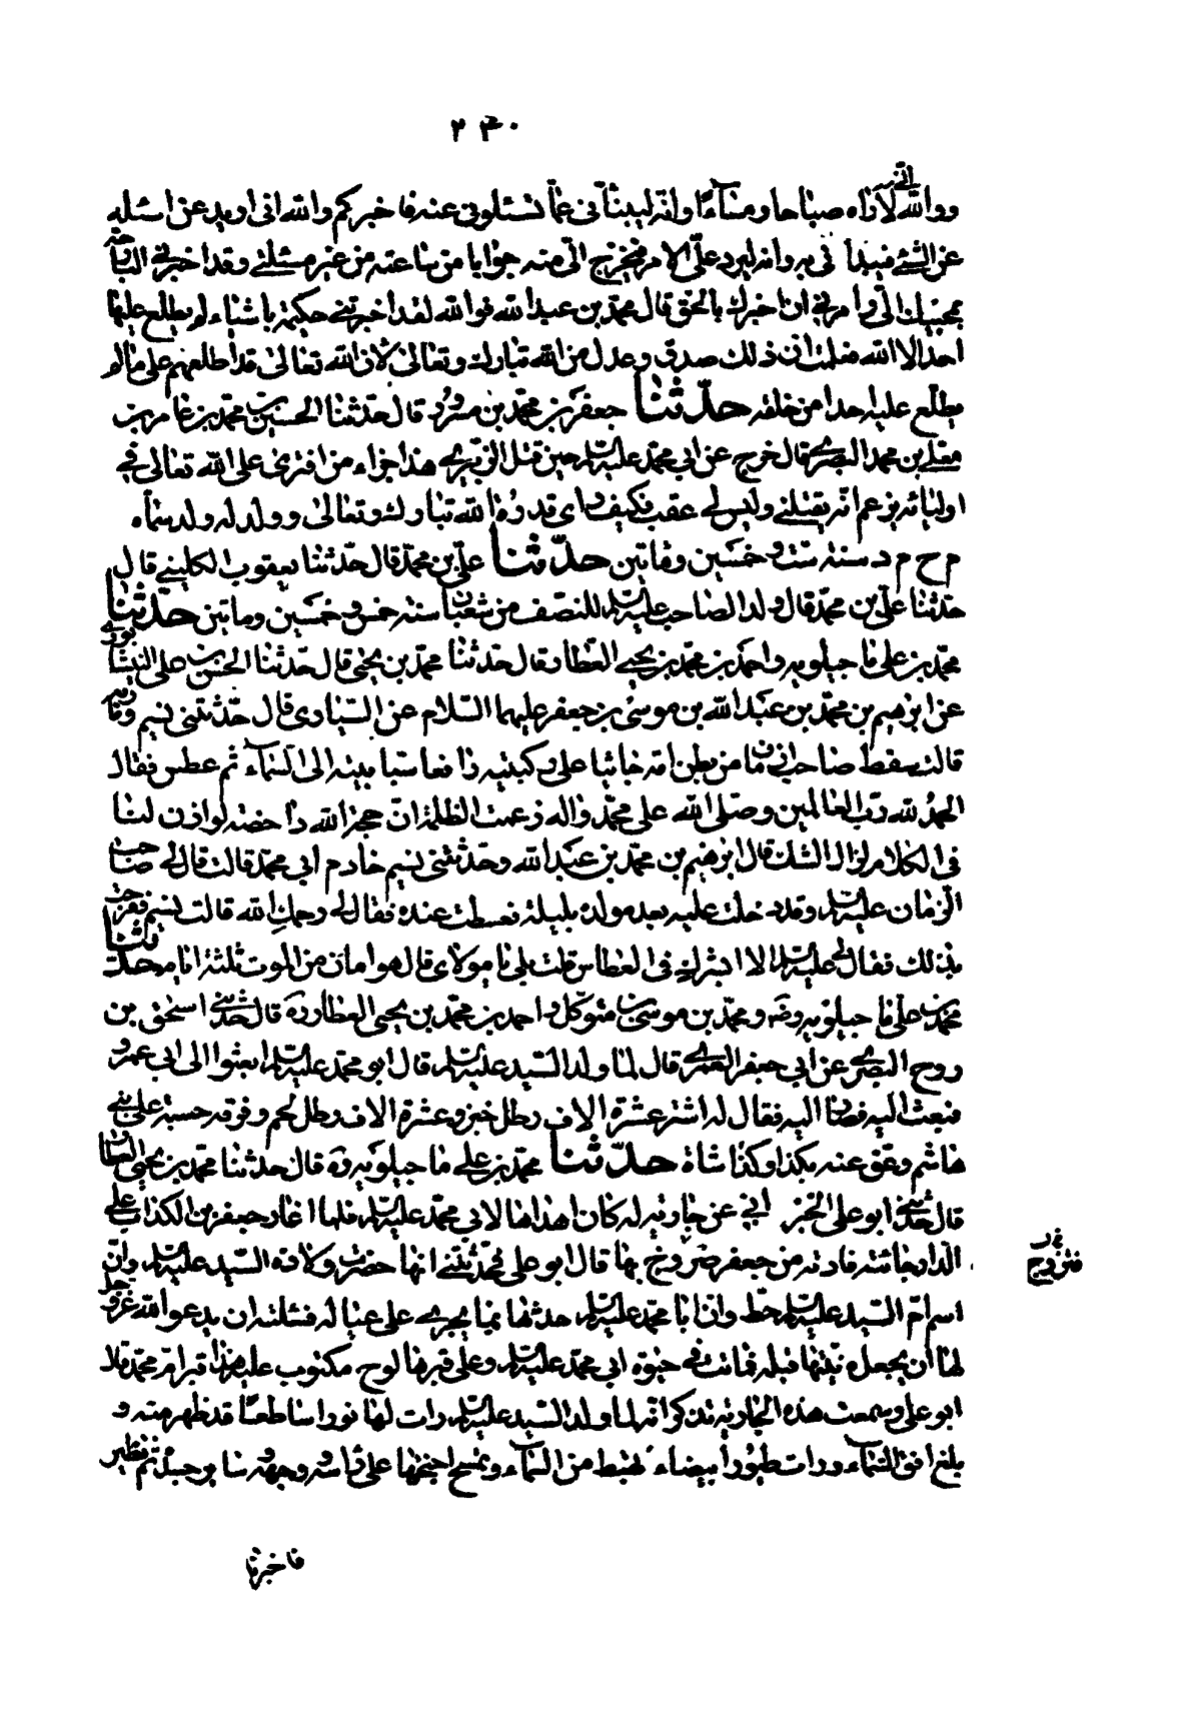 ٢٣٠
ووالله انّى لاراه صباحا ومساءً وانه لينبئانى عمّا تسئلونى عنه فاخبركم والله انى اريد عن اسئله
عن الشئ فيبدأنى به وانه ليرد علىّ الامر فيخرج الىّ منه جوابا من ساعته من غير مسئلتى وقد اخبرنى البارحة
بمجيئك الىّ وامرنى ان اخبرك بالحق قال محمّد بن عبد الله فوالله لقد اخبرتنى حكيمة باشياء لم يطلع عليها
احد الا الله فعلمت ان ذلك صدق وعدل من الله تبارك وتعالى لان الله تعالى قد اطلعهم على ما لم
يطلع عليه احدا من خلقه حدّثنا جعفر بن محمّد بن مسرور قال حدّثنا الحسين بن محمّد بن عامر بن
معلى بن محمد البصرى قال خرج عن ابى محمّد عليه السلم حين قتل الزبيرى هذا جزاء من افترى على الله تعالى فى
اوليائه يزعم انّه يقتلنى وليس لى عقب فكيف راى قدرة الله تبارك وتعالى وولد له ولد سمّاه
م ح م د سنة ست وخمسين وماتين حدّثنا علىّ بن محمّد قال حدّثنا يعقوب الكلينى قال
حدثنا علىّ بن محمّد قال ولد الصاحب عليه السلم للنصف من شعبان سنة خمس وخمسين وماتين حدّثنا
محمّد بن على ماجيلويه واحمد بن محمّد بن يحيى العطار قال حدثنا محمّد بن يحيى قال حدثنا الحسن بن على النيشابورى
عن ابرهيم بن محمّد بن عبد الله بن موسى بن جعفر عليهما السلام عن السّيارى قال حدّثتنى نسيم ومارية
قالت سقط صاحب الزمان من بطن امّه جاثيا على ركبتيه رافعا سبابتيه الى السماء ثم عطس فقال
الحمد لله ربّ العالمين وصلى الله على محمّد واله زعمت الظلمة انّ حجة الله داحضة لو اذن لنا
فى الكلام لزال الشك قال ابرهيم بن محمّد بن عبد الله وحدّثتنى نسيم خادم ابى محمّد قالت قال لى صاحب
الزمان عليه السلم وقد دخلت عليه بعد مولده بليلة فعطست عنده فقال لى يرحمك الله قالت نسيم ففرحت
بذلك فقال لى عليه السلم الا ابشرك فى العطاس قلت بلى يا مولاى قال هو امان من الموت ثلثة ايام حدّثنا
محمد بن على ماجيلويه رضه ومحمّد بن موسى بن متوكل واحمد بن محمّد بن يحيى العطار ره قال حدثنى اسحق بن
روح البصرى عن ابى جعفر العمرى قال لمّا ولد السّيد عليه السلم قال ابو محمّد عليه السلم ابعثوا الى ابى عمرو
فبعث اليه فصار اليه فقال له اشتر عشرة الاف رطل خبز وعشرة الاف رطل لحم وفرقه حسبة على بنى
هاشم وعق عنه بكذا وكذا شاة حدّثنا محمّد بن على ماجيلويه ره قال حدثنا محمّد بن يحيى العطار
قال حدثنى ابو على الخيزرانى عن جارية له كان اهداها لابى محمّد عليه السلم فلما اغار جعفر بن الكذاب على
الدار جائته فارة من جعفر فتزوج بها قال ابو على فحدّثتنى انها حضرت ولادة السّيد عليه السلم وانّ
فتزوج
اسم امّ السّيد عليه السلم صقيل وانّ ابا محمّد عليه السلم حدثها بما يجرى على عياله فسئلته ان يدعو الله عزّ وجل
لها ان يجعل منيّتها قبله فماتت فى حيوة ابى محمّد عليه السلم وعلى قبرها لوح مكتوب عليه هذا قبر امّ محمّد قال
ابو على وسمعت هذه الجارية تذكر انّه لما ولد السّيد عليه السلم رات لها نورا ساطعًا قد ظهر منه و
بلغ افق السّماء ورات طيورًا بيضاء تهبط من السماء وتمسح اجنحتها على راسه ووجهه وساير جسده ثم تطير
فاخبرنا